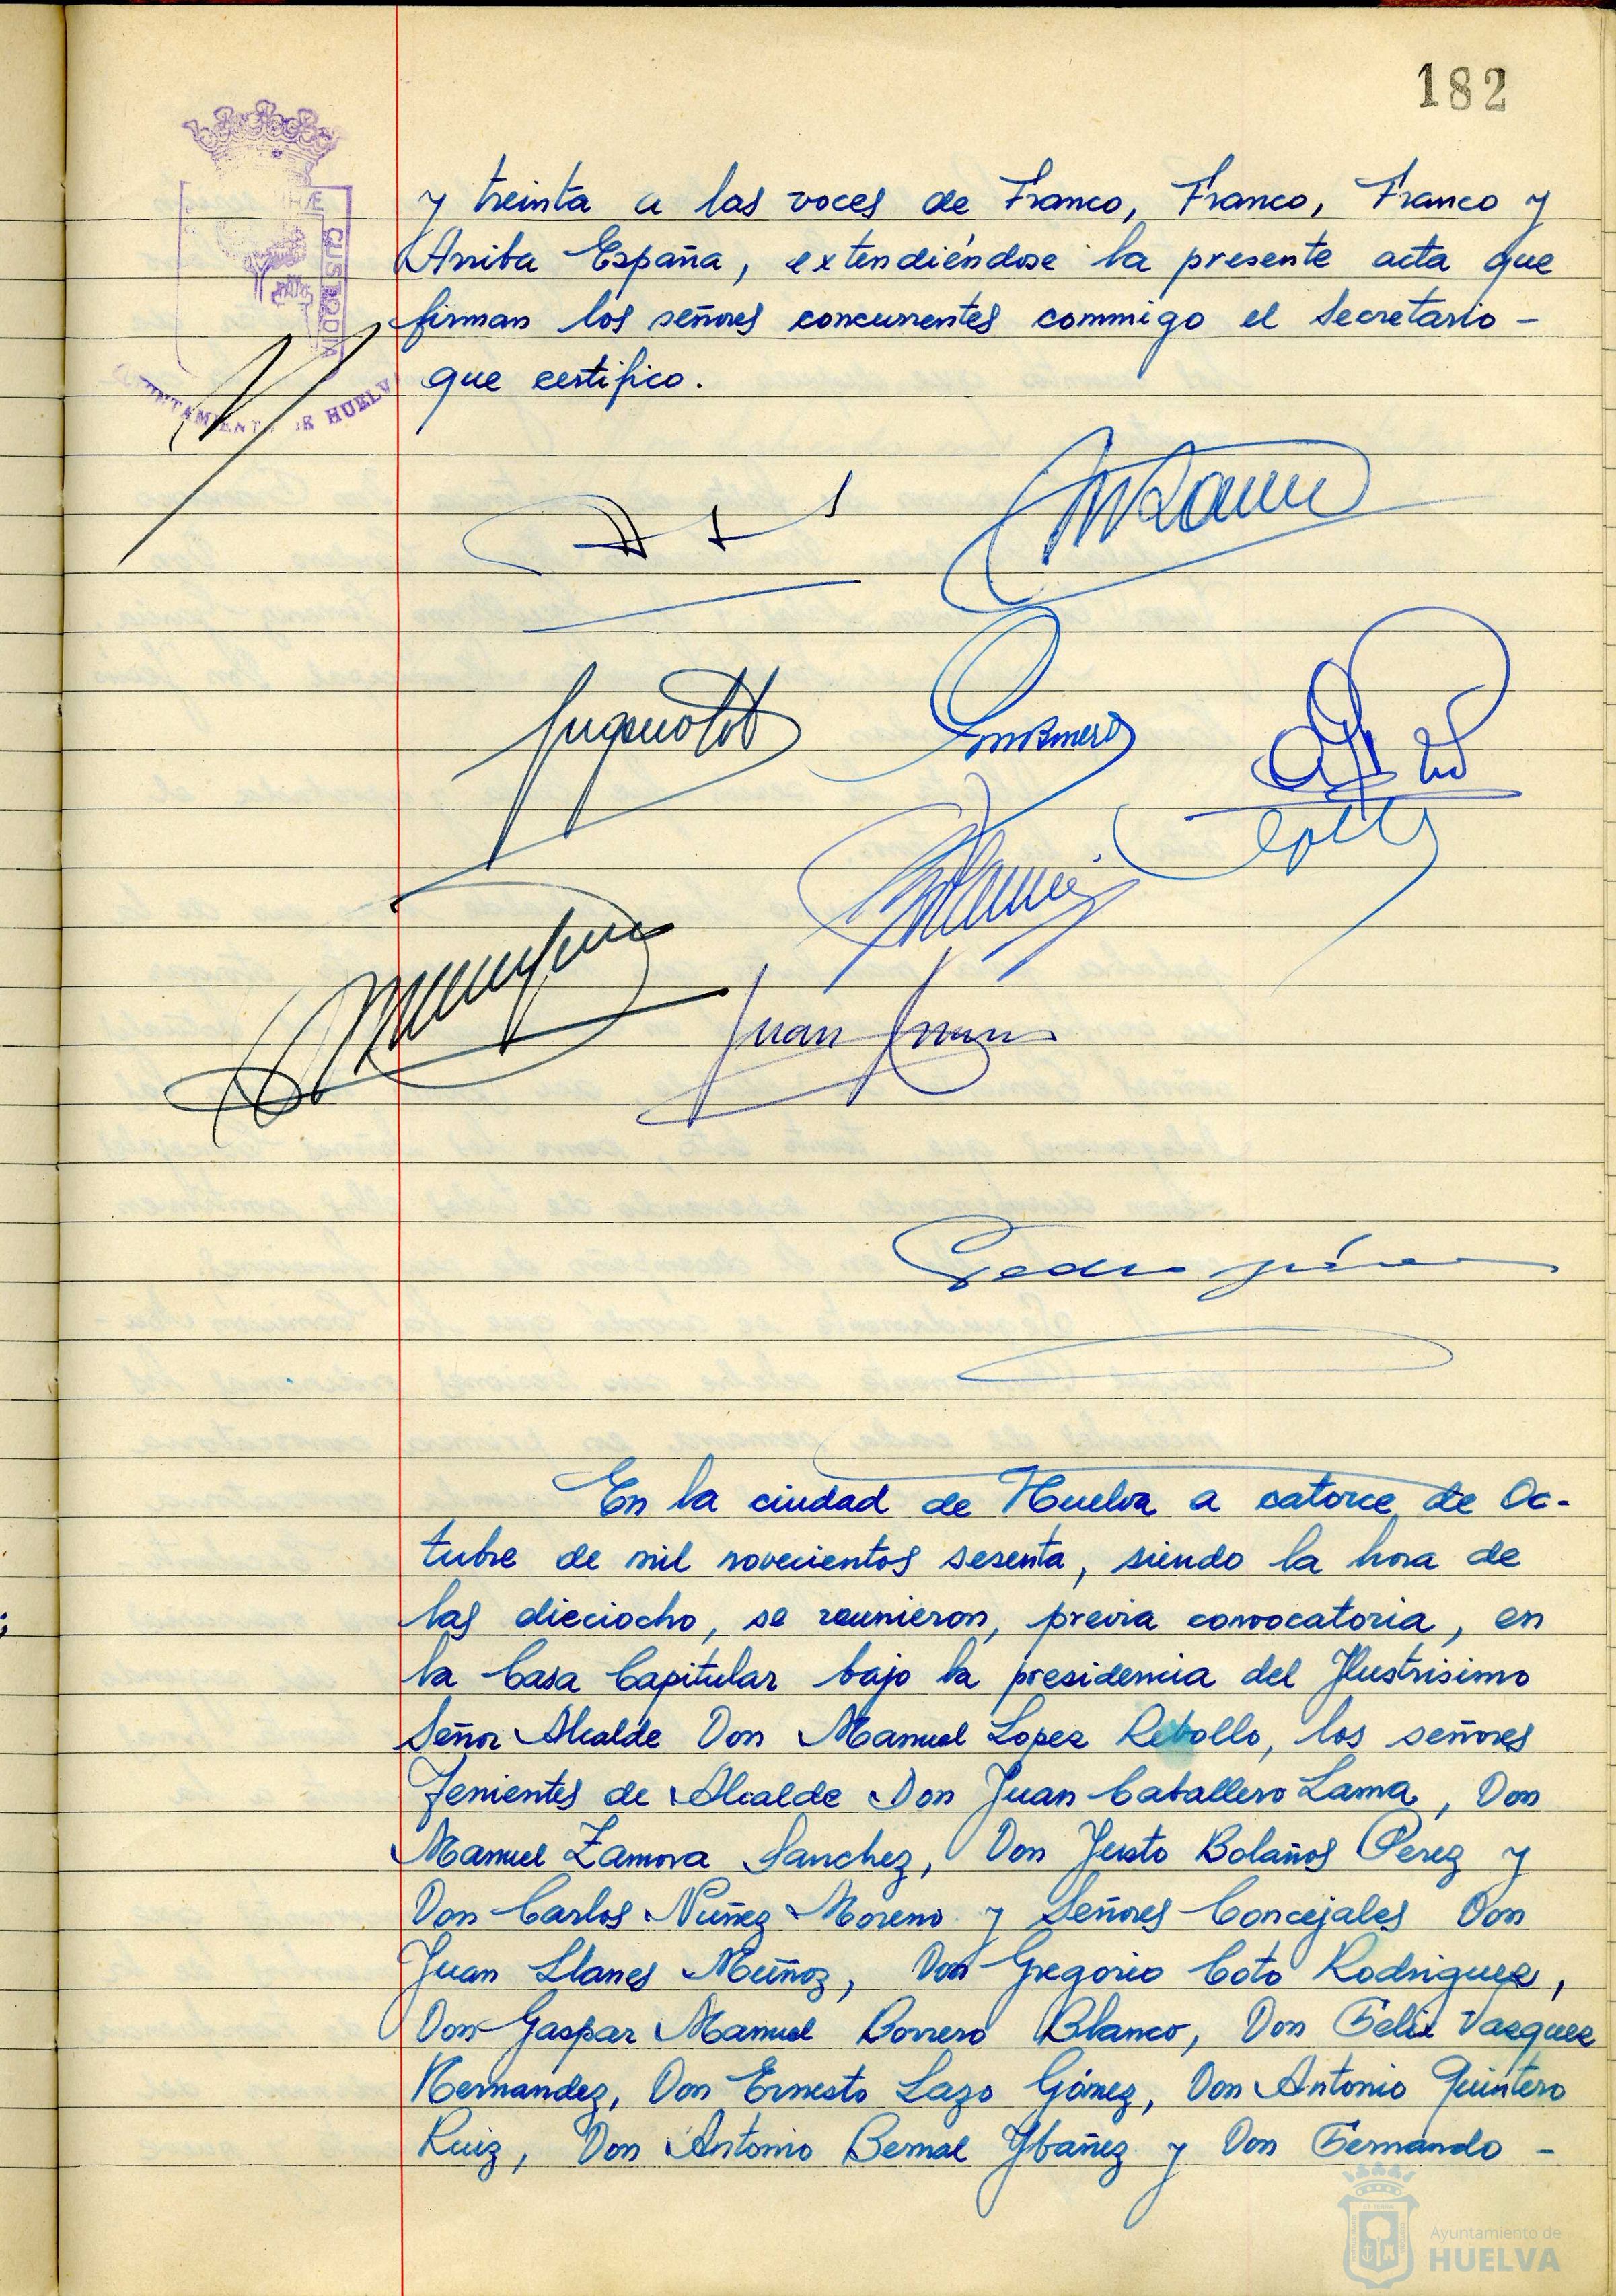 182
y treinta a las voces de Franco, Franco, Franco y
Arriba España, extendiéndose la presente acta que
firman los señores concurrentes commigo el Secretario -
que certifico.
CUSTODIA
AYUNTAMIENTO DE HUELVA
Juan
Pedro
En la ciudad de Huelva a catorce de Oc-
tubre de mil novecientos sesenta, siendo la hora de
las dieciocho, se reunieron, previa convocatoria, en
la Casa Capitular bajo la presidencia del Ilustrisimo
Señor Alcalde Don Manuel Lopez Rebollo, los señores
Tenientes de Alcalde Don Juan Caballero Lama, Don
Manuel Zamora Sanchez, Don Justo Bolaños Perez y
Don Carlos Nuñez Moreno y Señores Concejales Don
Juan Llanes Muñoz, Don Gregorio Coto Rodriguez,
Don Gaspar Manuel Borrero Blanco, Don Felix Vazquez
Hernandez, Don Ernesto Lazo Gómez, Don Antonio Quintero
Ruiz, Don Antonio Bernal Ybañez y Don Fernando -
Ayuntamiento de
HUELVA